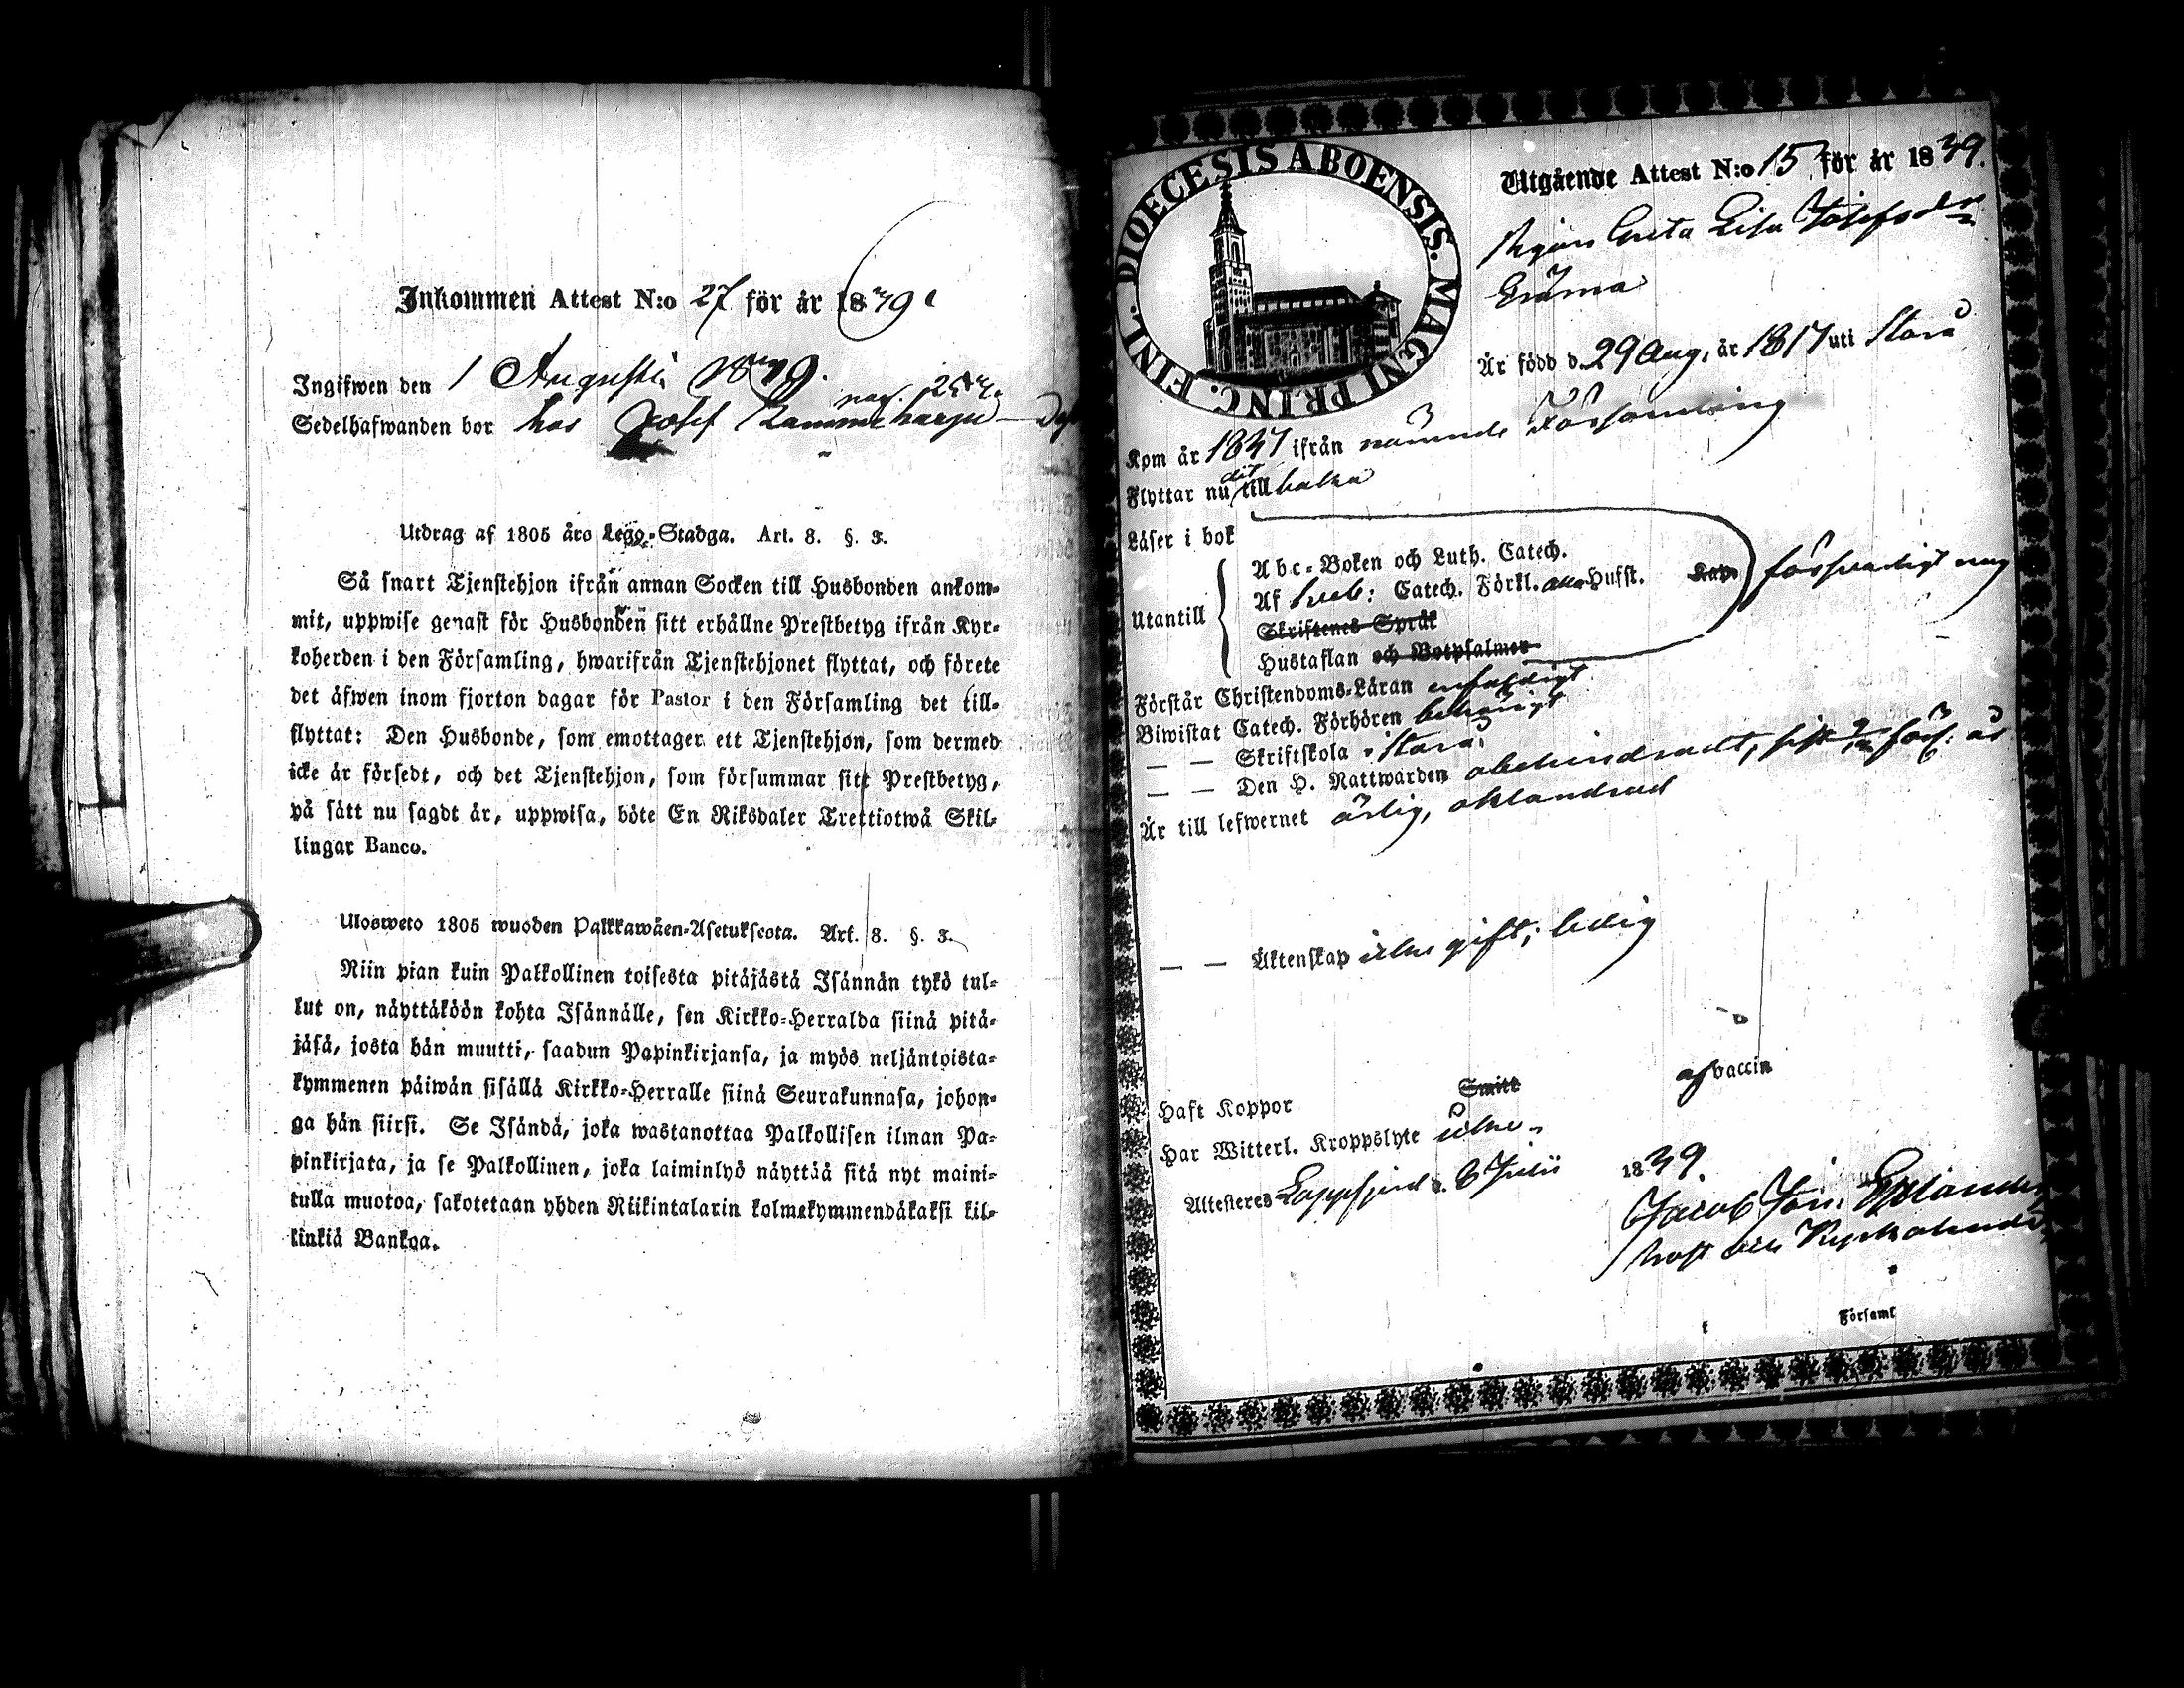 Inkommen Attest N:o 27 för år 1839.
Ingifwen den 1 Augusti 1839.
pag. 254.
Sedelhafwanden bor hos Josef
Utdrag af 1805 års Lego-Stadga. Art. 8. §. 3.
Så snart Tjenstehjon ifrån annan Socken till Husbonden ankom-
mit, uppwise genast för Husbonden sitt erhållne Prestbetyg ifrån Kyr-
koherden i den Församling, hwarifrån Tjenstehjonet flyttat, och förete
det äfwen inom fjorton dagar för Pastor i den Församling det till-
flyttat: Den Husbonde, som emottager ett Tjenstehjon, som dermed
icke är försedt, och det Tjenstehjon, som försummar sitt Prestbetyg,
på sätt nu sagdt är, uppwisa, böte En Riksdaler Trettiotwå Skil-
lingar Banco.
Ulosweto 1805 wuoden Palkkawäen-Asetuksesta. Art. 8. §. 3.
Niin pian kuin Palkollinen toisesta pitäjästä Isännän tykö tul-
lut on, näyttäköön kohta Isännälle, sen Kirkko-Herralda siinä pitä-
jäsä, josta hän muutti, saadun Papinkirjansa, ja myös neljäntoista-
kymmenen päiwän sisällä Kirkko-Herralle siinä Seurakunnasa, johon-
ga hän siirsi. Se Isändä, joka wastanottaa Palkollisen ilman Pa-
pinkirjata, ja se Palkollinen, joka laiminlyö näyttää sitä nyt maini-
tulla muotoa, sakotetaan yhden Riikintalarin kolmekymmendäkaksi kil-
kinkiä Bankoa.
FINL. DIOECESIS ABOENSIS. MAGNI PRINC.
Utgående Attest N:o 15 för år 1839.
Pigan Greta Lisa Josefsdr
Gröma
Är född d. 29 Aug. år 1817 uti Storå
Kom år 1837 ifrån nämnde Församling
Flyttar nu dit tillbaka
Läser i bok
Utantill
Abc-Boken och Luth. Catech.
Af Sveb: Catech. Förkl. Husst. Kap.
försvarligt
Skriftenes Språk
Hustaflan och Botpsalmer
Förstår Christendoms-Läran enfaldigt
Biwistat Catech. Förhören behörigt
— — Skriftskola i Storå
— — Den H. Nattwarden obehindradt, sist år
Är till lefwernet ärlig, oklandrad
— — Äktenskap icke gift; ledig
Haft Koppor Smitt af vaccin
Har Witterl. Kroppslyte icke.
Attesteres Lappfjerd d. 6 Julii 1839.
Jacob Joh. Estlander
Prost och Kyrkoherde
Församl